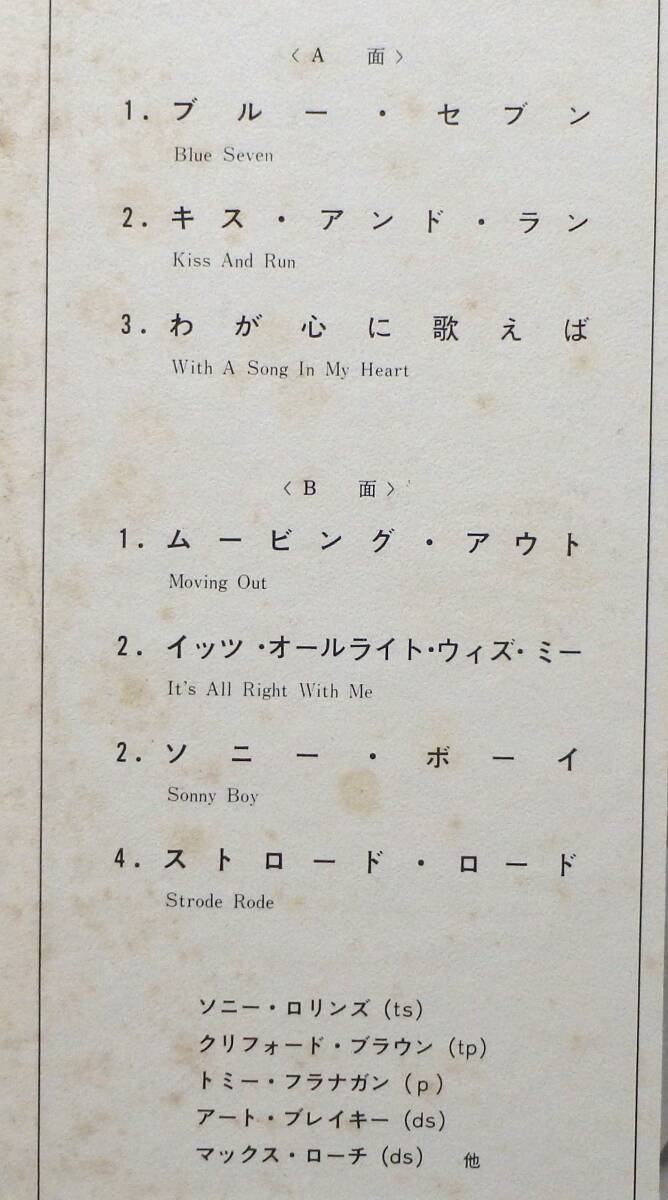 〈A 面〉
1. ブルー・セブン
Blue Seven
2. キス・アンド・ラン
Kiss And Run
3. わが心に歌えば
With A Song In My Heart
〈B 面〉
1. ムービング・アウト
Moving Out
2. イッツ・オールライト・ウィズ・ミー
It's All Right With Me
2. ソニー・ボーイ
Sonny Boy
4. ストロード・ロード
Strode Rode
ソニー・ロリンズ (ts)
クリフォード・ブラウン (tp)
トミー・フラナガン (p)
アート・ブレイキー (ds)
マックス・ローチ (ds) 他